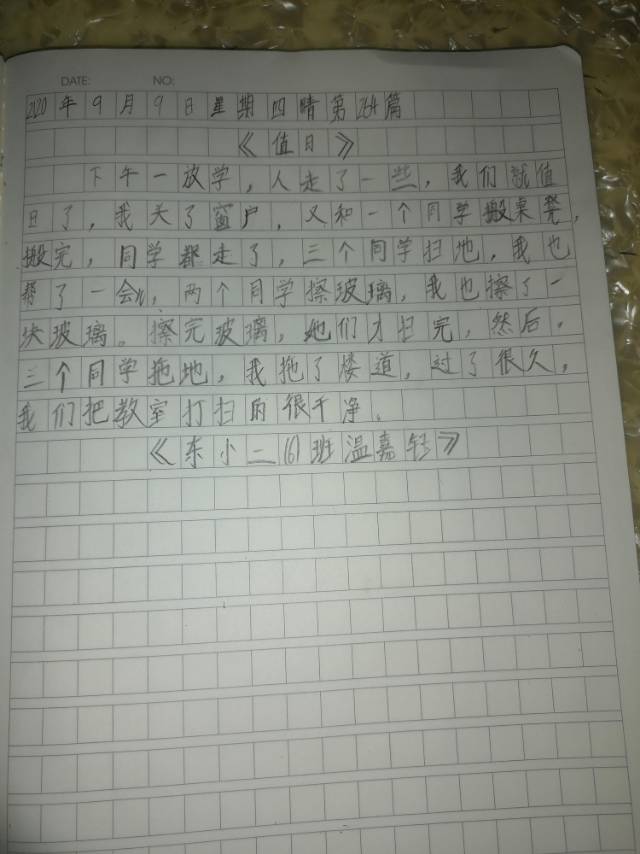 DATE: NO:
2120年9月9日星期四晴第264篇
《值日》
下午一放学，人走了一些，我们就值
日了，我关了窗户，又和一个同学搬桌凳，
搬完，同学都走了，三个同学扫地，我也
帮了一会儿，两个同学擦玻璃，我也擦了一
块玻璃。擦完玻璃，她们才扫完，然后，
三个同学拖地，我拖了楼道，过了很久，
我们把教室打扫的很干净。
《东小二(6)班温嘉钰》